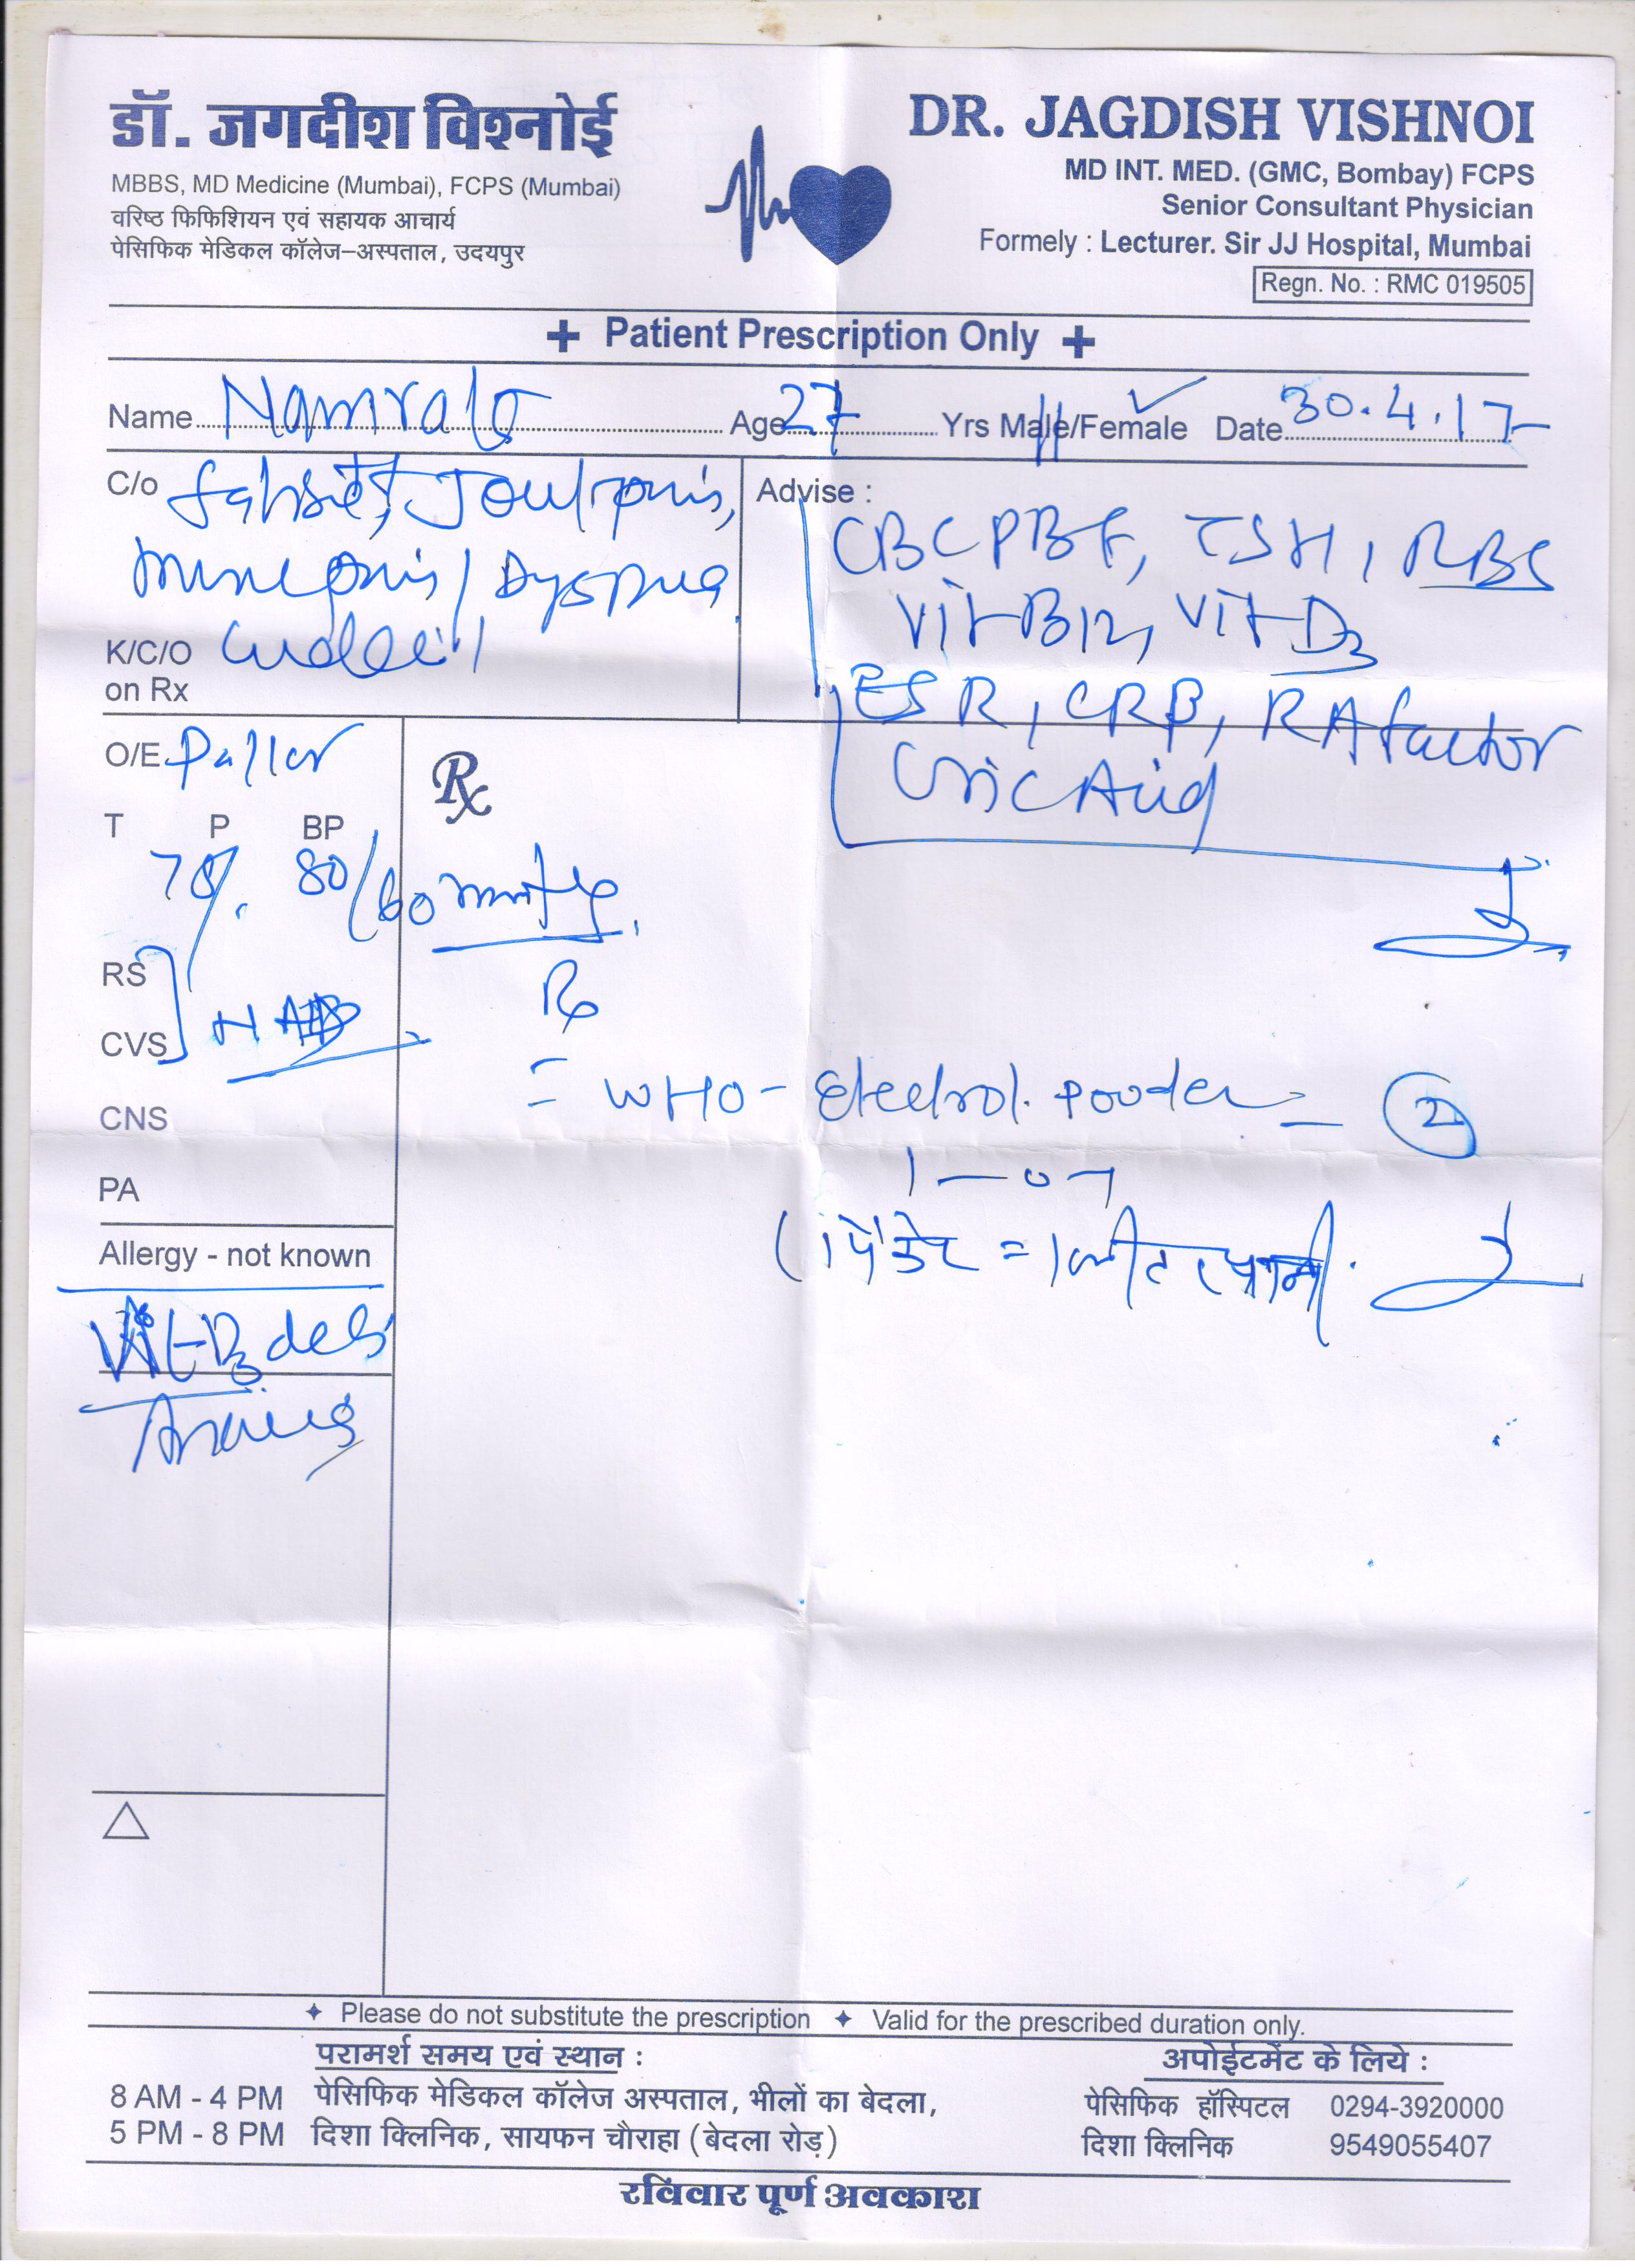 डॉ. जगदीश विश्नोई
MBBS, MD Medicine (Mumbai), FCPS (Mumbai)
वरिष्ठ फिफिशियन एवं सहायक आचार्य
पेसिफिक मेडिकल कॉलेज–अस्पताल, उदयपुर
DR. JAGDISH VISHNOI
MD INT. MED. (GMC, Bombay) FCPS
Senior Consultant Physician
Formely : Lecturer. Sir JJ Hospital, Mumbai
Regn. No. : RMC 019505
+ Patient Prescription Only +
Name Namrata Age 27 Yrs Male/Female ✓ Date 30.4.17
C/o Joint pains,
Dyspnea
K/C/O
on Rx
Advise :
CBC PBF, TSH, RBS
Vit B12, Vit D3
ESR, CRP, RA factor
Uric Acid
O/E Pallor
Rx
T P BP
78/. 80/60 mmHg
RS
CVS
NAD
CNS
PA
Allergy - not known
Vit-D3 def
Rx
= WHO - Electrol. Powder - 2
1-0-1
(1 पैकेट = 1 लीटर पानी.
△
✦ Please do not substitute the prescription ✦ Valid for the prescribed duration only.
परामर्श समय एवं स्थान :
8 AM - 4 PM पेसिफिक मेडिकल कॉलेज अस्पताल, भीलों का बेदला,
5 PM - 8 PM दिशा क्लिनिक, सायफन चौराहा (बेदला रोड़)
अपोईटमेंट के लिये :
पेसिफिक हॉस्पिटल 0294-3920000
दिशा क्लिनिक 9549055407
रविवार पूर्ण अवकाश